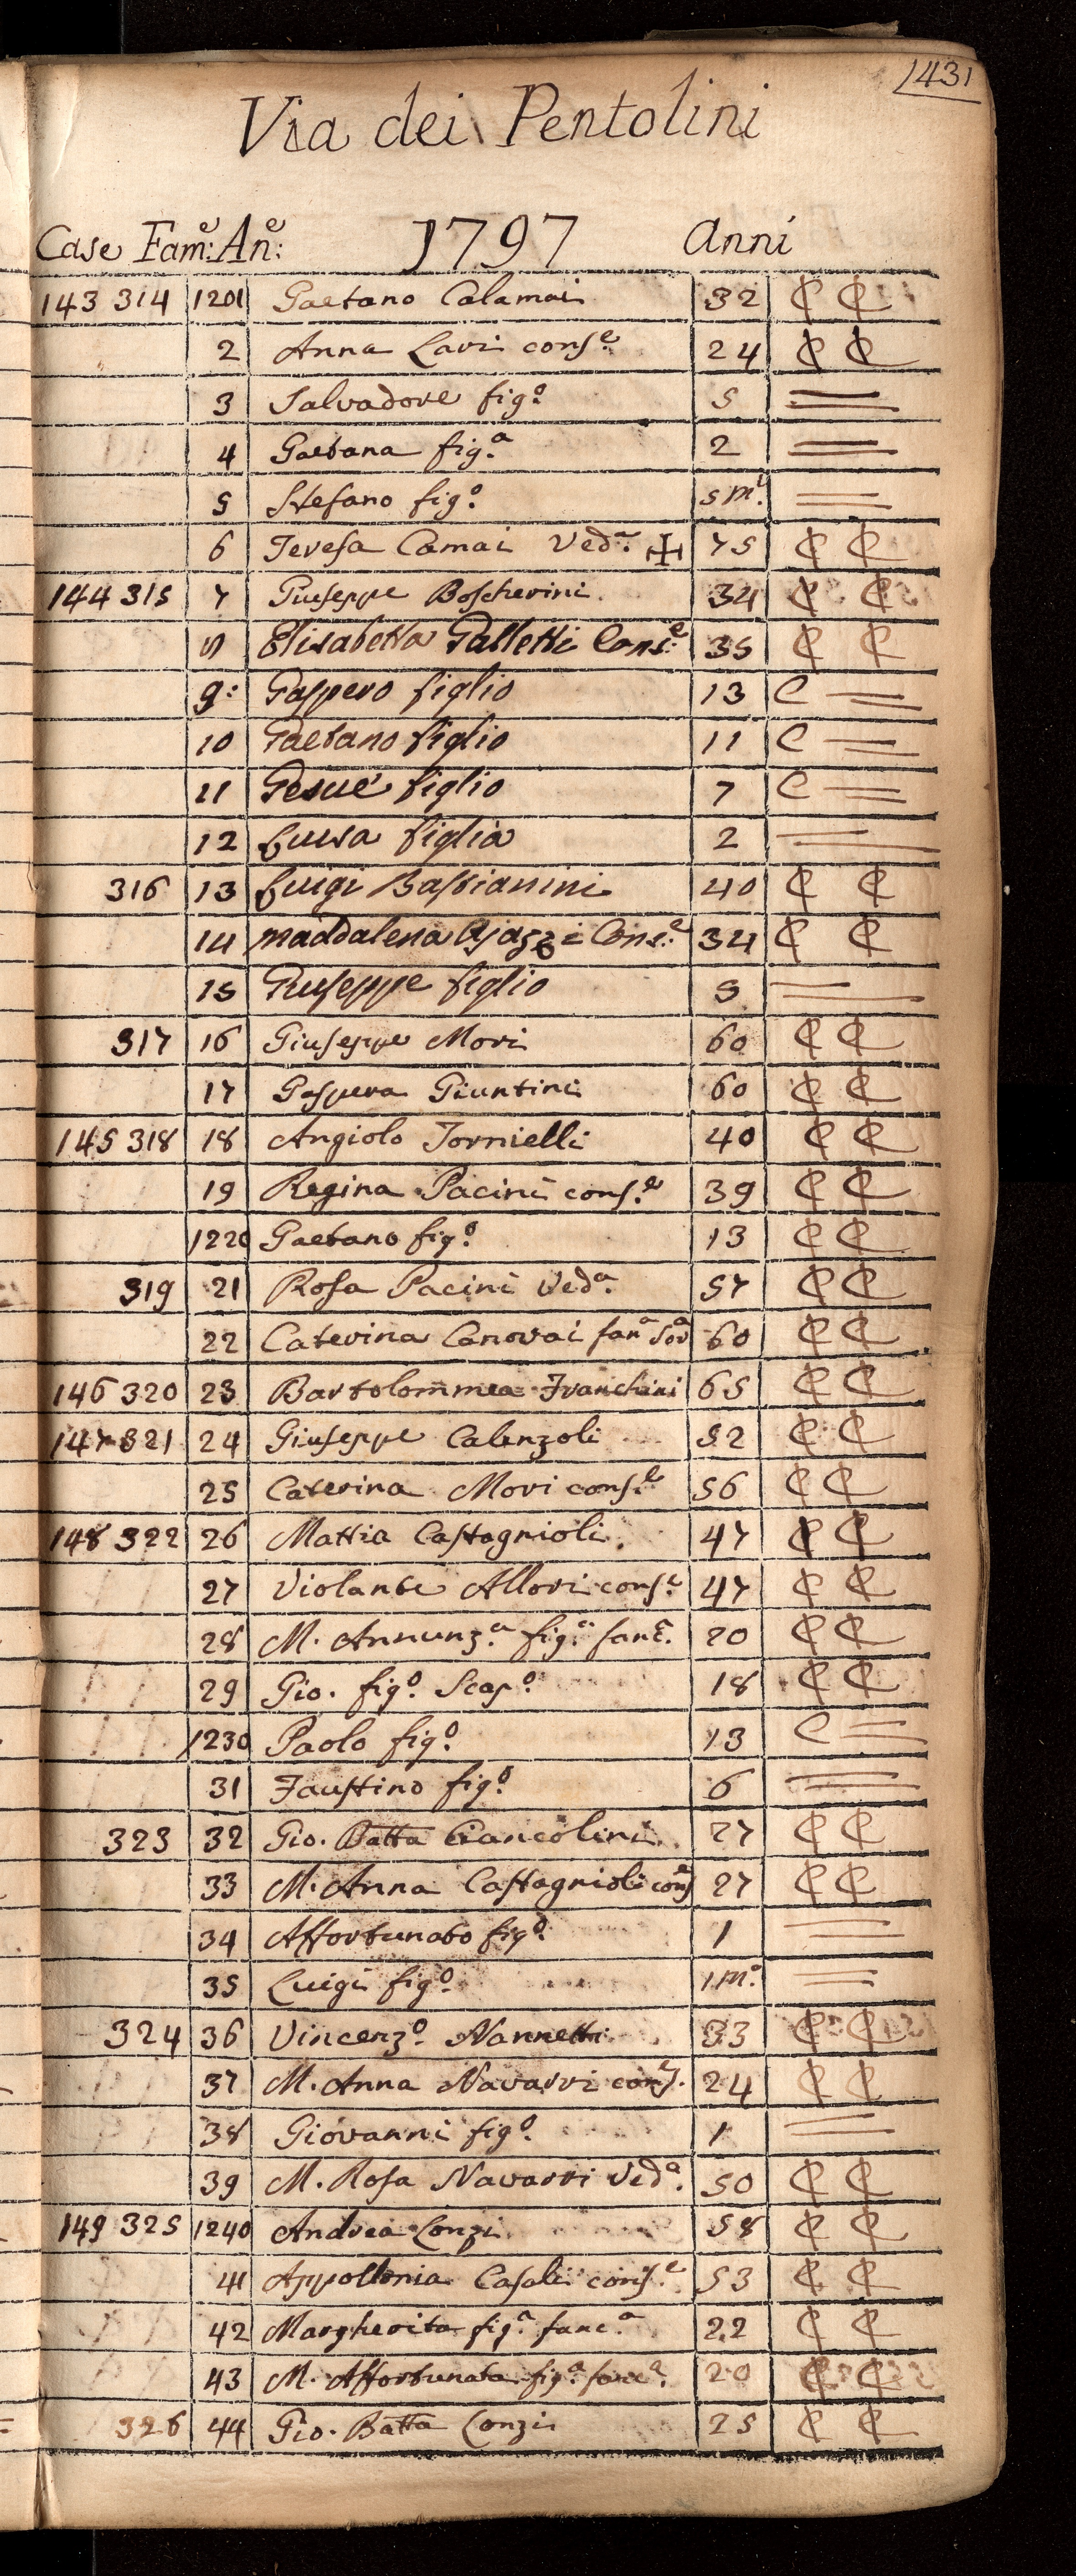 1431
Via dei Pentolini
Case Fam.e: An.e: 1797 Anni
143 314 1201 Gaetano Calamai 32 C C
2 Anna Lavi cons.e 24 C C
3 Salvadore fig.o 5 =
4 Gaetana fig.a 2 =
5 Stefano fig.o 5 m.i =
6 Teresa Camai Ved.a ✠ 75 C C
144 315 7 Giuseppe Boscherini 34 C C
8 Elisabetta Galletti Cons.e 35 C C
9: Gaspero figlio 13 C =
10 Gaetano figlio 11 C =
11 Gesue figlio 7 C =
12 Luisa figlia 2 =
316 13 Luigi Bastianini 40 C C
14 Maddalena Ajazzi Cons.e 34 C C
15 Giuseppe figlio 3 =
317 16 Giuseppe Mori 60 C C
17 Gaspera Giuntini 60 C C
145 318 18 Angiolo Tornielli 40 C C
19 Regina Pacini cons.e 39 C C
1220 Gaetano fig.o 13 C C
319 21 Rosa Pacini Ved.a 57 C C
22 Caterina Canovai fan.a Sor.a 60 C C
146 320 23 Bartolommea Franchini 65 C C
147 321 24 Giuseppe Calenzoli 52 C C
25 Caterina Mori cons.e 56 C C
148 322 26 Mattia Castagnioli 47 C C
27 Violante Allori cons.e 47 C C
28 M. Annunz.a fig.a fanc. 20 C C
29 Gio. fig.o Scap.o 18 C C
1230 Paolo fig.o 13 C =
31 Faustino fig.o 6 =
323 32 Gio. Batta Ciancolini 27 C C
33 M. Anna Castagnioli cons.e 27 C C
34 Affortunato fig.o 1 =
35 Luigi fig.o 1 m.e =
324 36 Vincenz.o Nannetti 33 C C
37 M. Anna Navarri cons. 24 C C
38 Giovanni fig.o 1 =
39 M. Rosa Navarri Ved.a 50 C C
149 325 1240 Andrea Conzi 58 C C
41 Appollonia Casali cons.e 53 C C
42 Margherita fig.a fanc.a 22 C C
43 M. Affortunata fig.a fanc.a 20 C C
326 44 Gio. Batta Conzi 25 C C